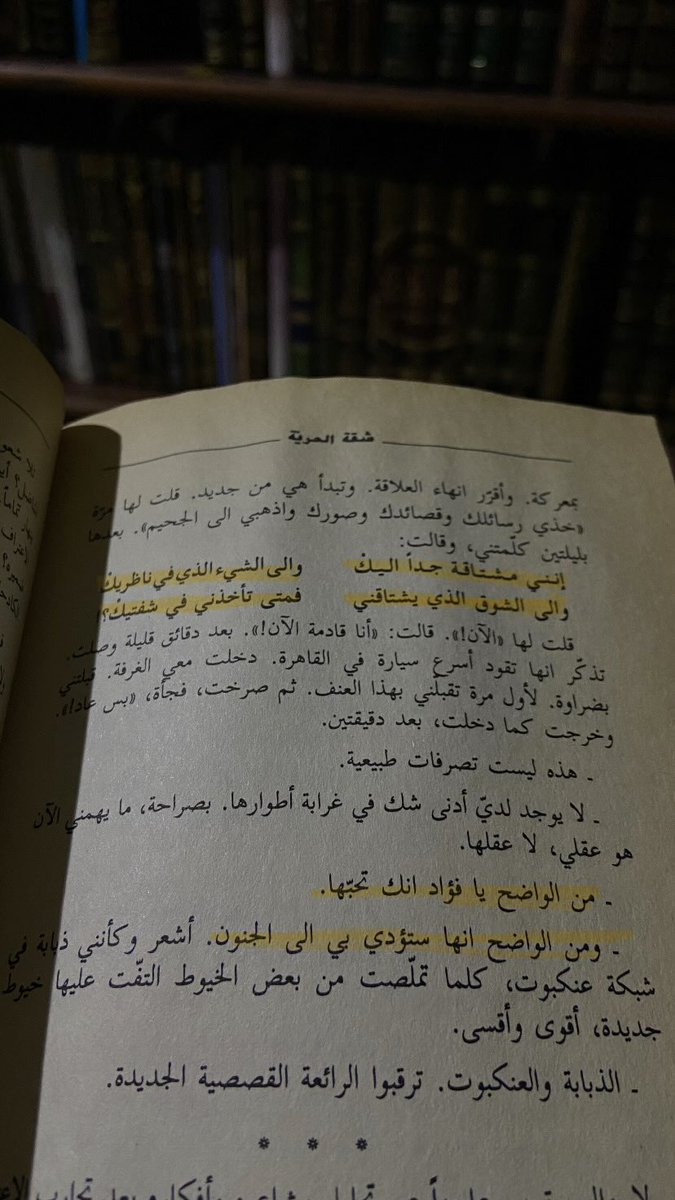 شقة الحرية
بمعركة. وأقرّر انهاء العلاقة. وتبدأ هي من جديد. قلت لها مرّة
«خذي رسائلك وقصائدك وصورك واذهبي الى الجحيم». بعدها
بليلتين كلّمتني، وقالت:
إنني مشتاقة جداً اليكْ والى الشيء الذي في ناظريكْ
والى الشوق الذي يشتاقني فمتى تأخذني في شفتيكْ؟!
قلت لها «الآن!». قالت: «أنا قادمة الآن!». بعد دقائق قليلة وصلت.
تذكّر انها تقود أسرع سيارة في القاهرة. دخلت معي الغرفة. قبلتني
بضراوة. لأول مرة تقبلّني بهذا العنف. ثم صرخت، فجأة، «بس عاد!».
وخرجت كما دخلت، بعد دقيقتين.
ـ هذه ليست تصرفات طبيعية.
ـ لا يوجد لديّ أدنى شك في غرابة أطوارها. بصراحة، ما يهمني الآن
هو عقلي، لا عقلها.
ـ من الواضح يا فؤاد انك تحبّها.
ـ ومن الواضح انها ستؤدي بي الى الجنون. أشعر وكأنني ذبابة في
شبكة عنكبوت، كلما تملّصت من بعض الخيوط التفّت عليها خيوط
جديدة، أقوى وأقسى.
ـ الذبابة والعنكبوت. ترقبوا الرائعة القصصية الجديدة.
* * *